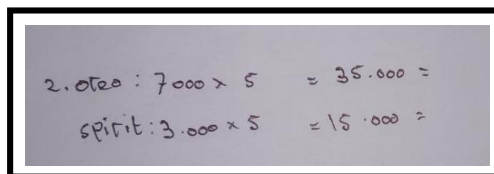 2. oteo : 7000 x 5 = 35.000 =
spirit : 3.000 x 5 = 15.000 =